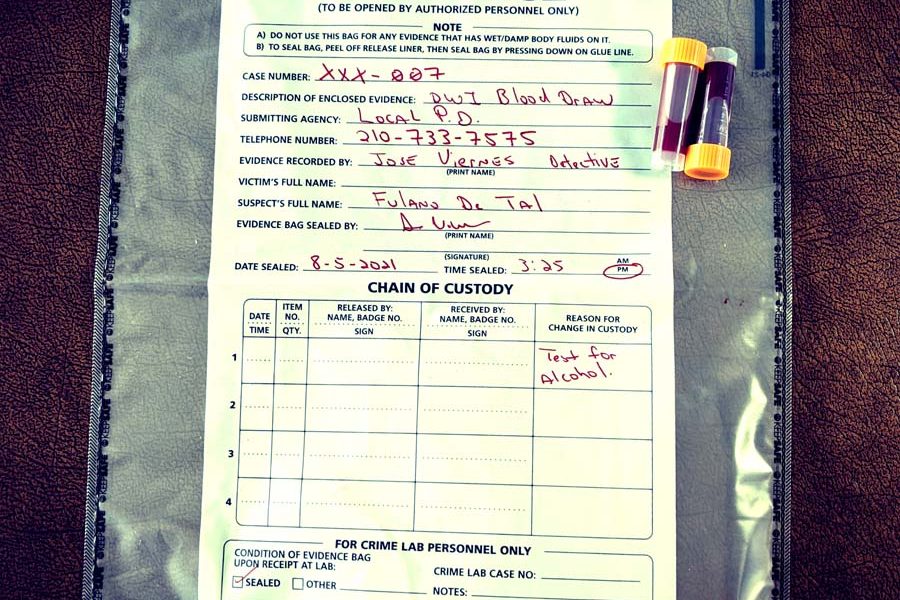 (TO BE OPENED BY AUTHORIZED PERSONNEL ONLY)
NOTE
A) DO NOT USE THIS BAG FOR ANY EVIDENCE THAT HAS WET/DAMP BODY FLUIDS ON IT.
B) TO SEAL BAG, PEEL OFF RELEASE LINER, THEN SEAL BAG BY PRESSING DOWN ON GLUE LINE.
CASE NUMBER: XXX-007
DESCRIPTION OF ENCLOSED EVIDENCE: DWI Blood Draw
SUBMITTING AGENCY: LOCAL P.D.
TELEPHONE NUMBER: 210-733-7575
EVIDENCE RECORDED BY: JOSE VIERNES Detective
(PRINT NAME)
VICTIM'S FULL NAME:
SUSPECT'S FULL NAME: FULANO De TAL
EVIDENCE BAG SEALED BY:
(PRINT NAME)
(SIGNATURE)
DATE SEALED: 8-5-2021 TIME SEALED: 3:25 AM PM
CHAIN OF CUSTODY
DATE TIME ITEM NO. QTY. RELEASED BY: NAME, BADGE NO. SIGN RECEIVED BY: NAME, BADGE NO. SIGN REASON FOR CHANGE IN CUSTODY
1 Test for Alcohol.
2
3
4
FOR CRIME LAB PERSONNEL ONLY
CONDITION OF EVIDENCE BAG
UPON RECEIPT AT LAB:
CRIME LAB CASE NO:
SEALED OTHER
NOTES:
KEEPSAFE